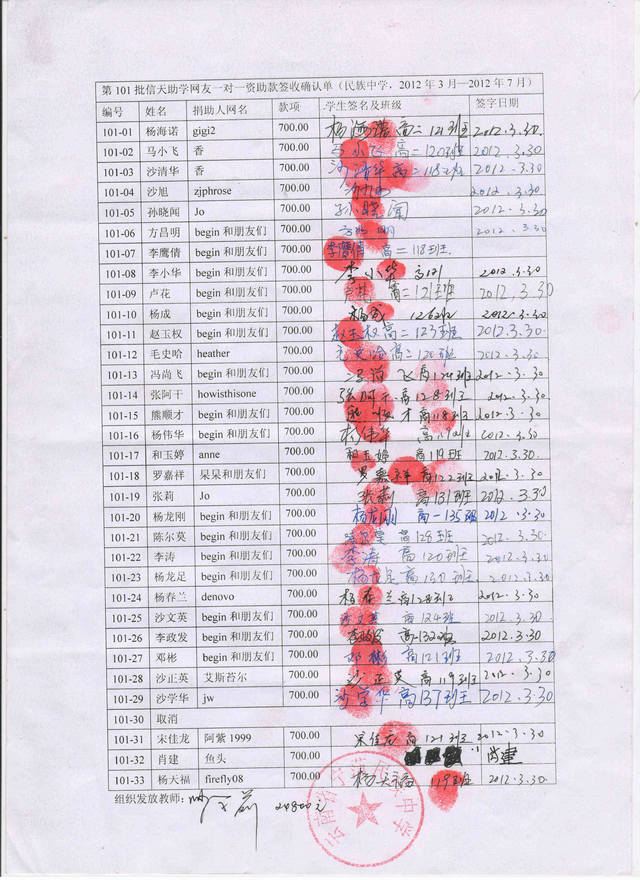 第 101 批信天助学网友一对一资助款签收确认单（民族中学，2012 年 3 月—2012 年 7 月）
编号 姓名 捐助人网名 款项 学生签名及班级 签字日期
101-01 杨海诺 gigi2 700.00 杨海诺 高二 121班 2012.3.30.
101-02 马小飞 香 700.00 马小飞 高二 120班 2012.3.30
101-03 沙清华 香 700.00 沙清华 高二 118班 2012.3.30
101-04 沙旭 zjphrose 700.00 2012.3.30
101-05 孙晓闻 Jo 700.00 孙晓闻 2012.3.30
101-06 方昌明 begin 和朋友们 700.00 方昌明 2012.3.30
101-07 李鹰倩 begin 和朋友们 700.00 李鹰倩 高二 118班.
101-08 李小华 begin 和朋友们 700.00 李小华 2012.3.30
101-09 卢花 begin 和朋友们 700.00 卢花 高二 121班 2012.3.30
101-10 杨成 begin 和朋友们 700.00 杨成 126班 2012.3.30.
101-11 赵玉权 begin 和朋友们 700.00 赵玉权 高二 123班 2012.3.30.
101-12 毛史哈 heather 700.00 毛史哈 高二 120班 2012.3.30
101-13 冯尚飞 begin 和朋友们 700.00 冯尚飞 高 124班 2012.3.30.
101-14 张阿干 howisthisone 700.00 张阿干 高 128班 2012.3.30
101-15 熊顺才 begin 和朋友们 700.00 熊顺才 高 118班 2012.3.30
101-16 杨伟华 begin 和朋友们 700.00 杨伟华 2012.3.30
101-17 和玉婷 anne 700.00 和玉婷 高 119班 2012.3.30
101-18 罗嘉祥 呆呆和朋友们 700.00 罗嘉祥 高 122班 2012.3.30
101-19 张莉 Jo 700.00 张莉 高 131班 2012.3.30
101-20 杨龙刚 begin 和朋友们 700.00 杨龙刚 高一 135班 2012.3.30
101-21 陈尔莫 begin 和朋友们 700.00 陈尔莫 高 128班 2012.3.30
101-22 李涛 begin 和朋友们 700.00 李涛 高 120班 2012.3.30
101-23 杨龙足 begin 和朋友们 700.00 杨龙足 高 130班. 2012.3.30
101-24 杨春兰 denovo 700.00 杨春兰 高 128班 2012.3.30
101-25 沙文英 begin 和朋友们 700.00 沙文英 高 124班 2012.3.30
101-26 李政发 begin 和朋友们 700.00 李政发 高 132班 2012.3.30
101-27 邓彬 begin 和朋友们 700.00 邓彬 高 121班 2012.3.30
101-28 沙正英 艾斯苔尔 700.00 沙正英 高 119班 2012.3.30
101-29 沙学华 jw 700.00 沙学华 高 137班 2012.3.30
101-30 取消
101-31 宋佳龙 阿紫 1999 700.00 宋佳龙 高 121班 2012.3.30
101-32 肖建 鱼头 700.00 肖建
101-33 杨天福 firefly08 700.00 杨天福 119班 2012.3.30
组织发放教师： 20800元